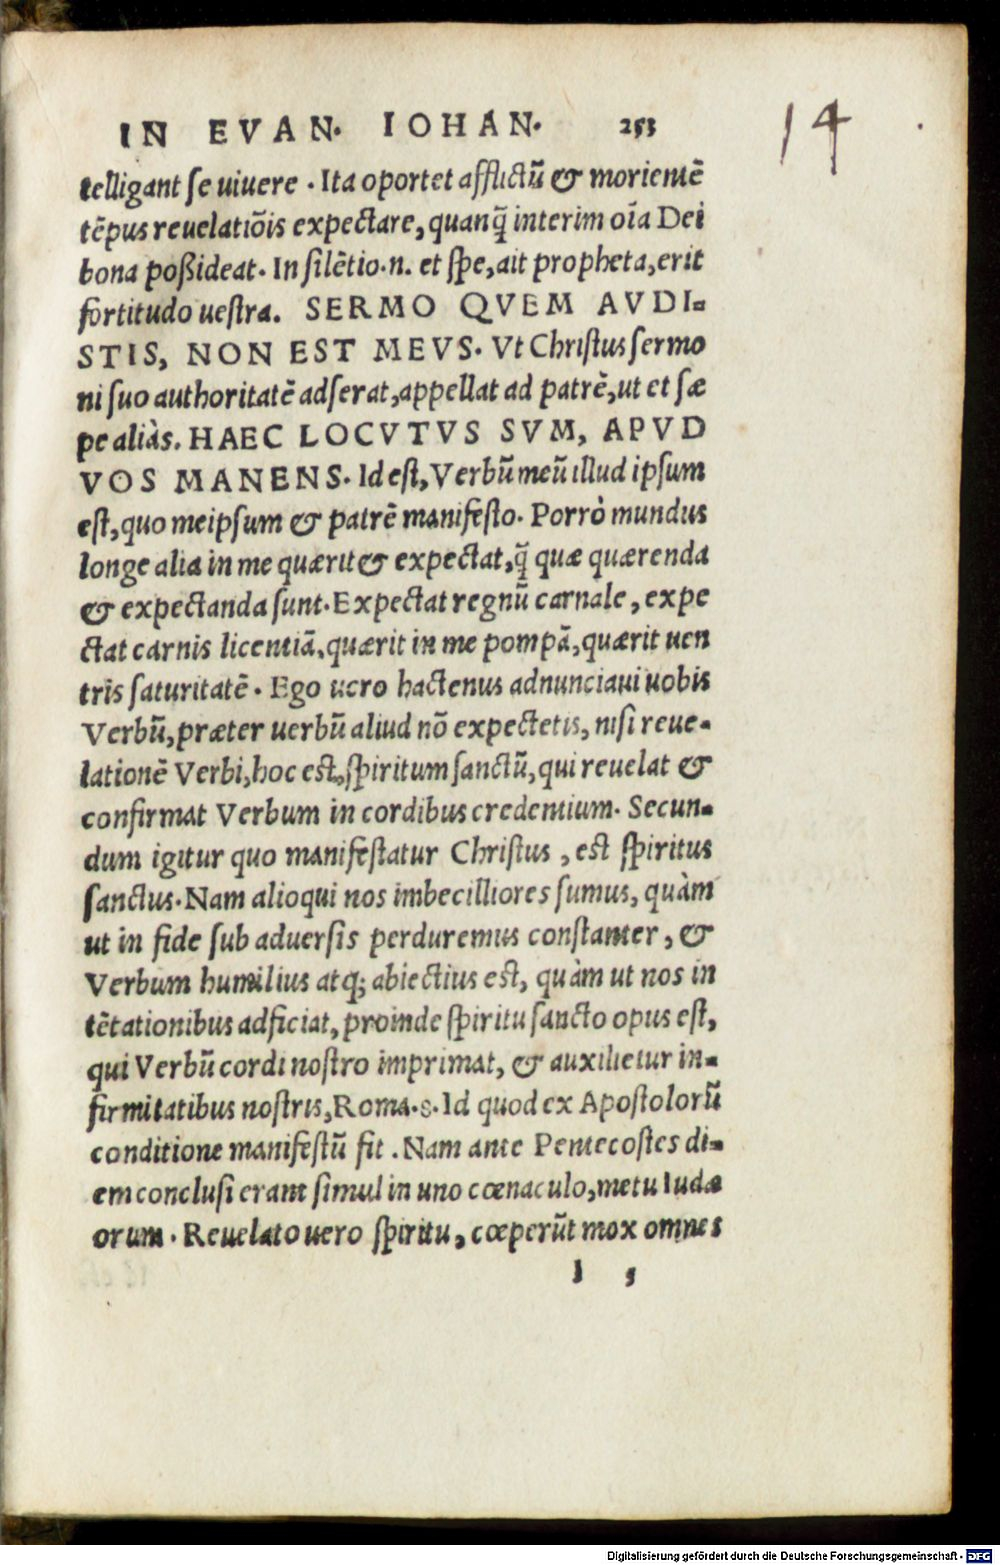 IN EVAN. IOHAN. 253
14
telligant se uiuere . Ita oportet afflictũ & morientẽ
tẽpus reuelatiõis expectare, quanq̃ interim oĩa Dei
bona poßideat. In silẽtio.n. et spe, ait propheta, erit
fortitudo uestra. SERMO QVEM AVDI-
STIS, NON EST MEVS. Vt Christus sermo
ni suo authoritatẽ adserat, appellat ad patrẽ, ut et sæ
pe aliàs. HAEC LOCVTVS SVM, APVD
VOS MANENS. Id est, Verbũ meũ illud ipsum
est, quo meipsum & patrẽ manifesto. Porrò mundus
longe alia in me quærit & expectat, q̃ quæ quærenda
& expectanda sunt. Expectat regnũ carnale, expe
ctat carnis licentiã, quærit in me pompã, quærit uen
tris saturitatẽ. Ego uero hactenus adnunciaui uobis
Verbũ, præter uerbũ aliud nõ expectetis, nisi reue-
lationẽ Verbi, hoc est, spiritum sanctũ, qui reuelat &
confirmat Verbum in cordibus credentium. Secun-
dum igitur quo manifestatur Christus, est spiritus
sanctus. Nam alioqui nos imbecilliores sumus, quàm
ut in fide sub aduersis perduremus constanter, &
Verbum humilius atq; abiectius est, quàm ut nos in
tẽtationibus adficiat, proinde spiritu sancto opus est,
qui Verbũ cordi nostro imprimat, & auxilietur in-
firmitatibus nostris, Roma.8. Id quod ex Apostolorũ
conditione manifestũ fit. Nam ante Pentecostes di-
em conclusi erant simul in uno cœnaculo, metu Iudæ
orum. Reuelato uero spiritu, cœperũt mox omnes
I 5
Digitalisierung gefördert durch die Deutsche Forschungsgemeinschaft - DFG